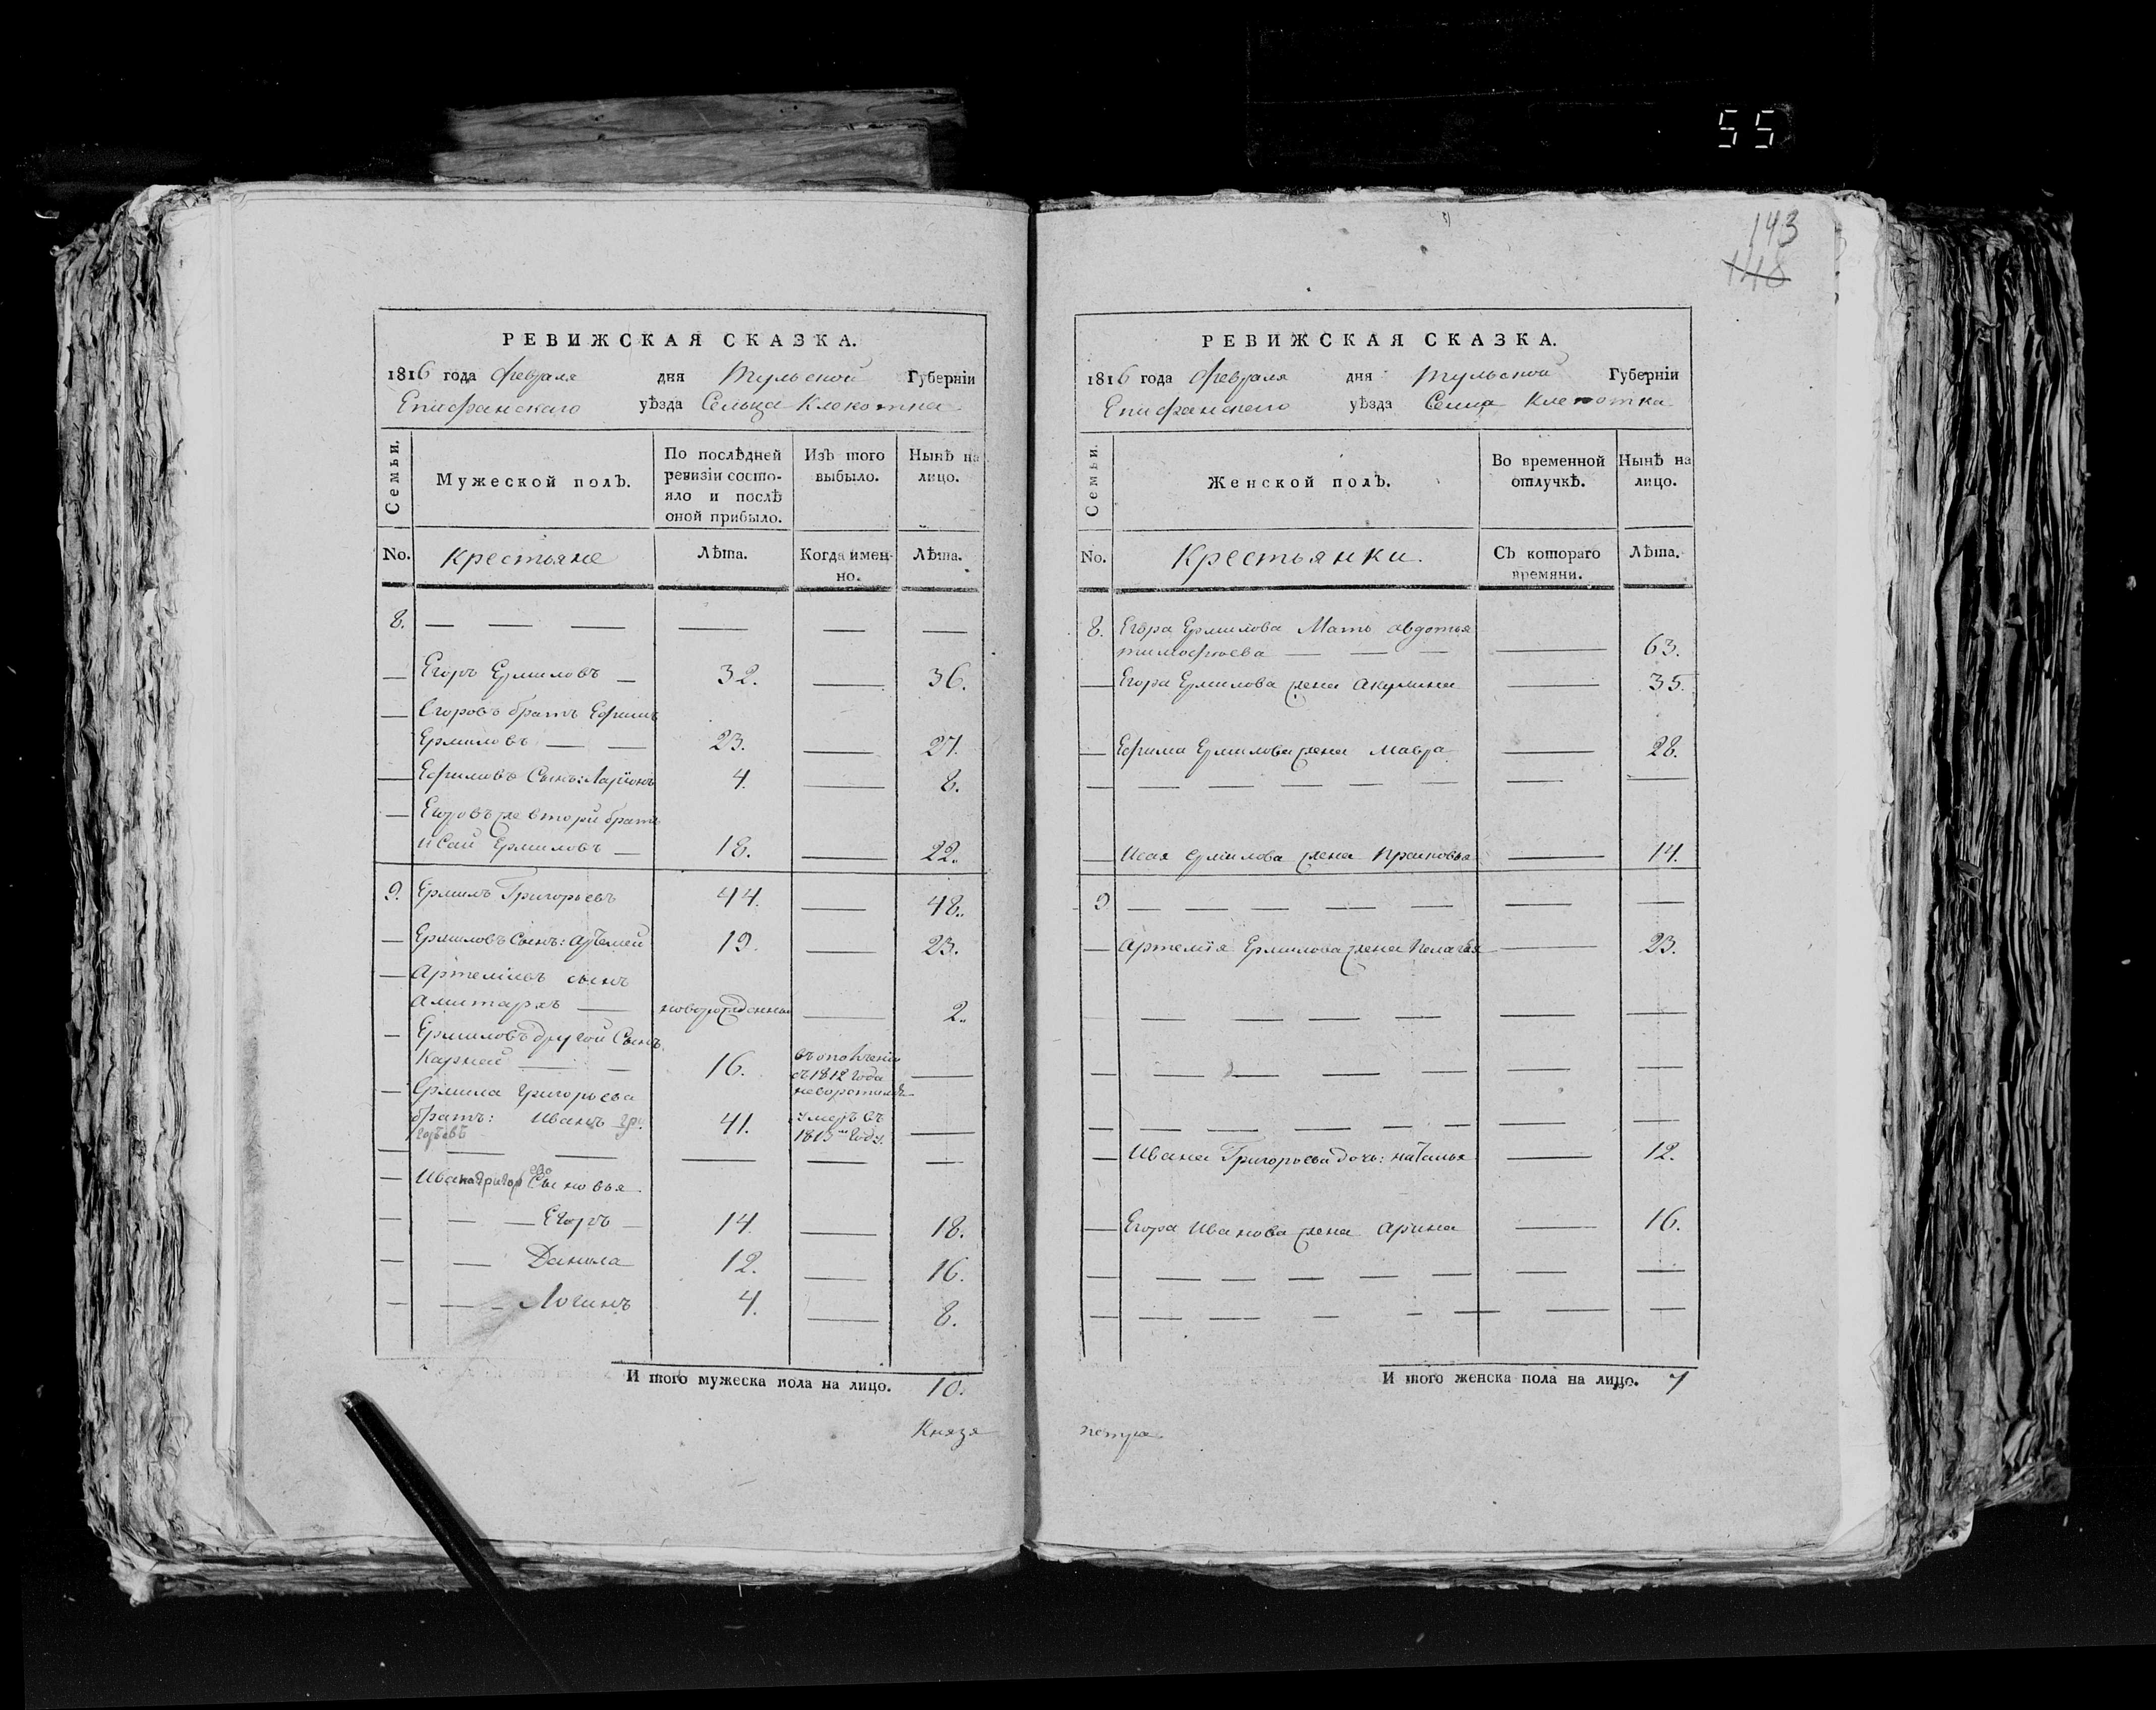 55
РЕВИЖСКАЯ СКАЗКА.
1816 года февраля дня Тульской Губерніи
Епифанскаго уѣзда Сельца Клекотка
Семьи.
Мужеской полЪ.
По послѣдней
ревизіи состо-
яло и послѣ
оной прибыло.
ИзЪ того
выбыло.
НынѢ на
лицо.
No.
Крестьяне
Лѣта.
Когда имен-
но.
Лѣта.
8. — — — — — —
— Егоръ Ермиловъ — 32. — 36.
— Егоровъ братъ Ефимъ
Ермиловъ — — 23. — 27.
— Ефимовъ Сынъ: Ларiонъ 4. — 8.
— Егоровъ же вторй братъ
Исай Ермиловъ — 18. — 22.
9. Ермилъ Григорьевъ 44. — 48.
— Ермиловъ Сынъ: Артемей 19. — 23.
— Артемiевъ сынъ
— новорожденны — 2.
— Ермиловъ другой Сынъ
Карней — — 16. въ ополчении
съ 1812 года
неворотился —
— Ермила Григорьева
братъ: Иванъ Гри
горьевъ 41. умеръ въ
1813м Году. —
— — — — — —
— Ивана Григор ево Сыновья
— — — Егоръ — 14. — 18.
— — Данила 12. — 16.
— — - Логинъ 4. — 8.
И того мужеска пола на лицо. 10.
Князя
143
148
РЕВИЖСКАЯ СКАЗКА.
1816 года февраля дня Тульской Губерніи
Епифанскаго уѣзда Селца Клекотка
Семьи.
Женской полЪ.
Во временной
отлучкѢ.
НынѢ на
лицо.
No.
Крестьянки.
СЪ котораго
времяни.
Лѣта.
8. Егора Ермилова Мать авдотья
тимофѣева — — — — 63.
— Егора Ермилова жена Акулина — 35.
— Ефима Ермилова жена Мавра — 28.
— — — — — — — —
— Исая ермилова жена Прасковья — 14.
9 — — — — — — —
— Артемiя Ермилова жена Пелагѣя — 23.
— — — — — — —
— — — — — — — —
— — — — — — — — —
— Ивана Григорьева дочь: наталья — 12.
— Егора Иванова жена Арина — 16.
— — — — — — — —
— — — — — — — — —
И того женска пола на лицо. 7
петра